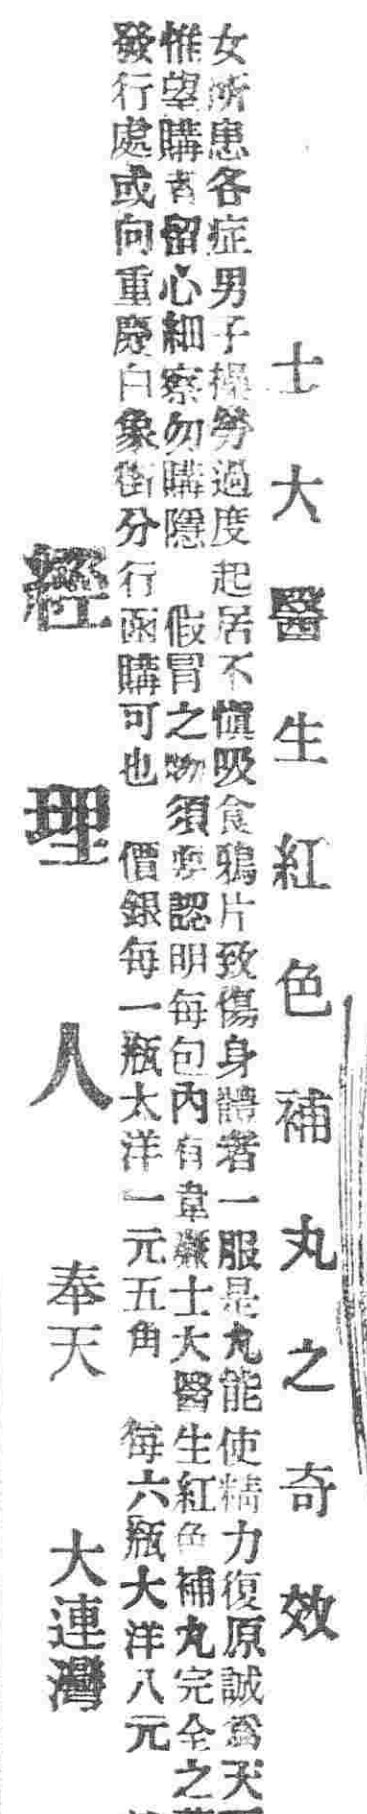 士大醫生紅色補丸之奇效
女所患各症男子操勞過度起居不慎吸食鴉片致傷身體者一服是丸能使精力復原誠爲天
惟望購者留心細察勿購隱 假冒之物須要認明每包內有韋廉士大醫生紅色補丸完全之
發行處或向重慶白象街分行函購可也 價銀每一瓶大洋一元五角 每六瓶大洋八元
經理人 奉天 大連灣